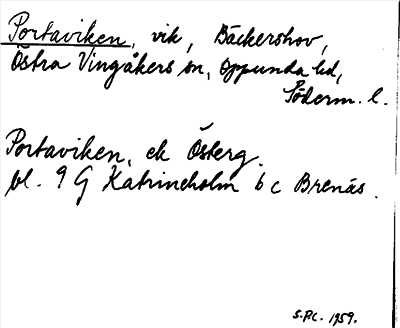 Portaviken, vik, Bäckershov,
Östra Vingåkers sn, Oppunda hd,
Söderm. l.
Portaviken, ek Österg.
bl. 9 G Katrineholm b c Brenäs.
S.P.C. 1959.